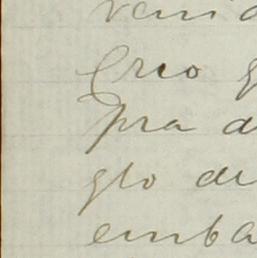 veni
Creo
pra d
glo de
emba